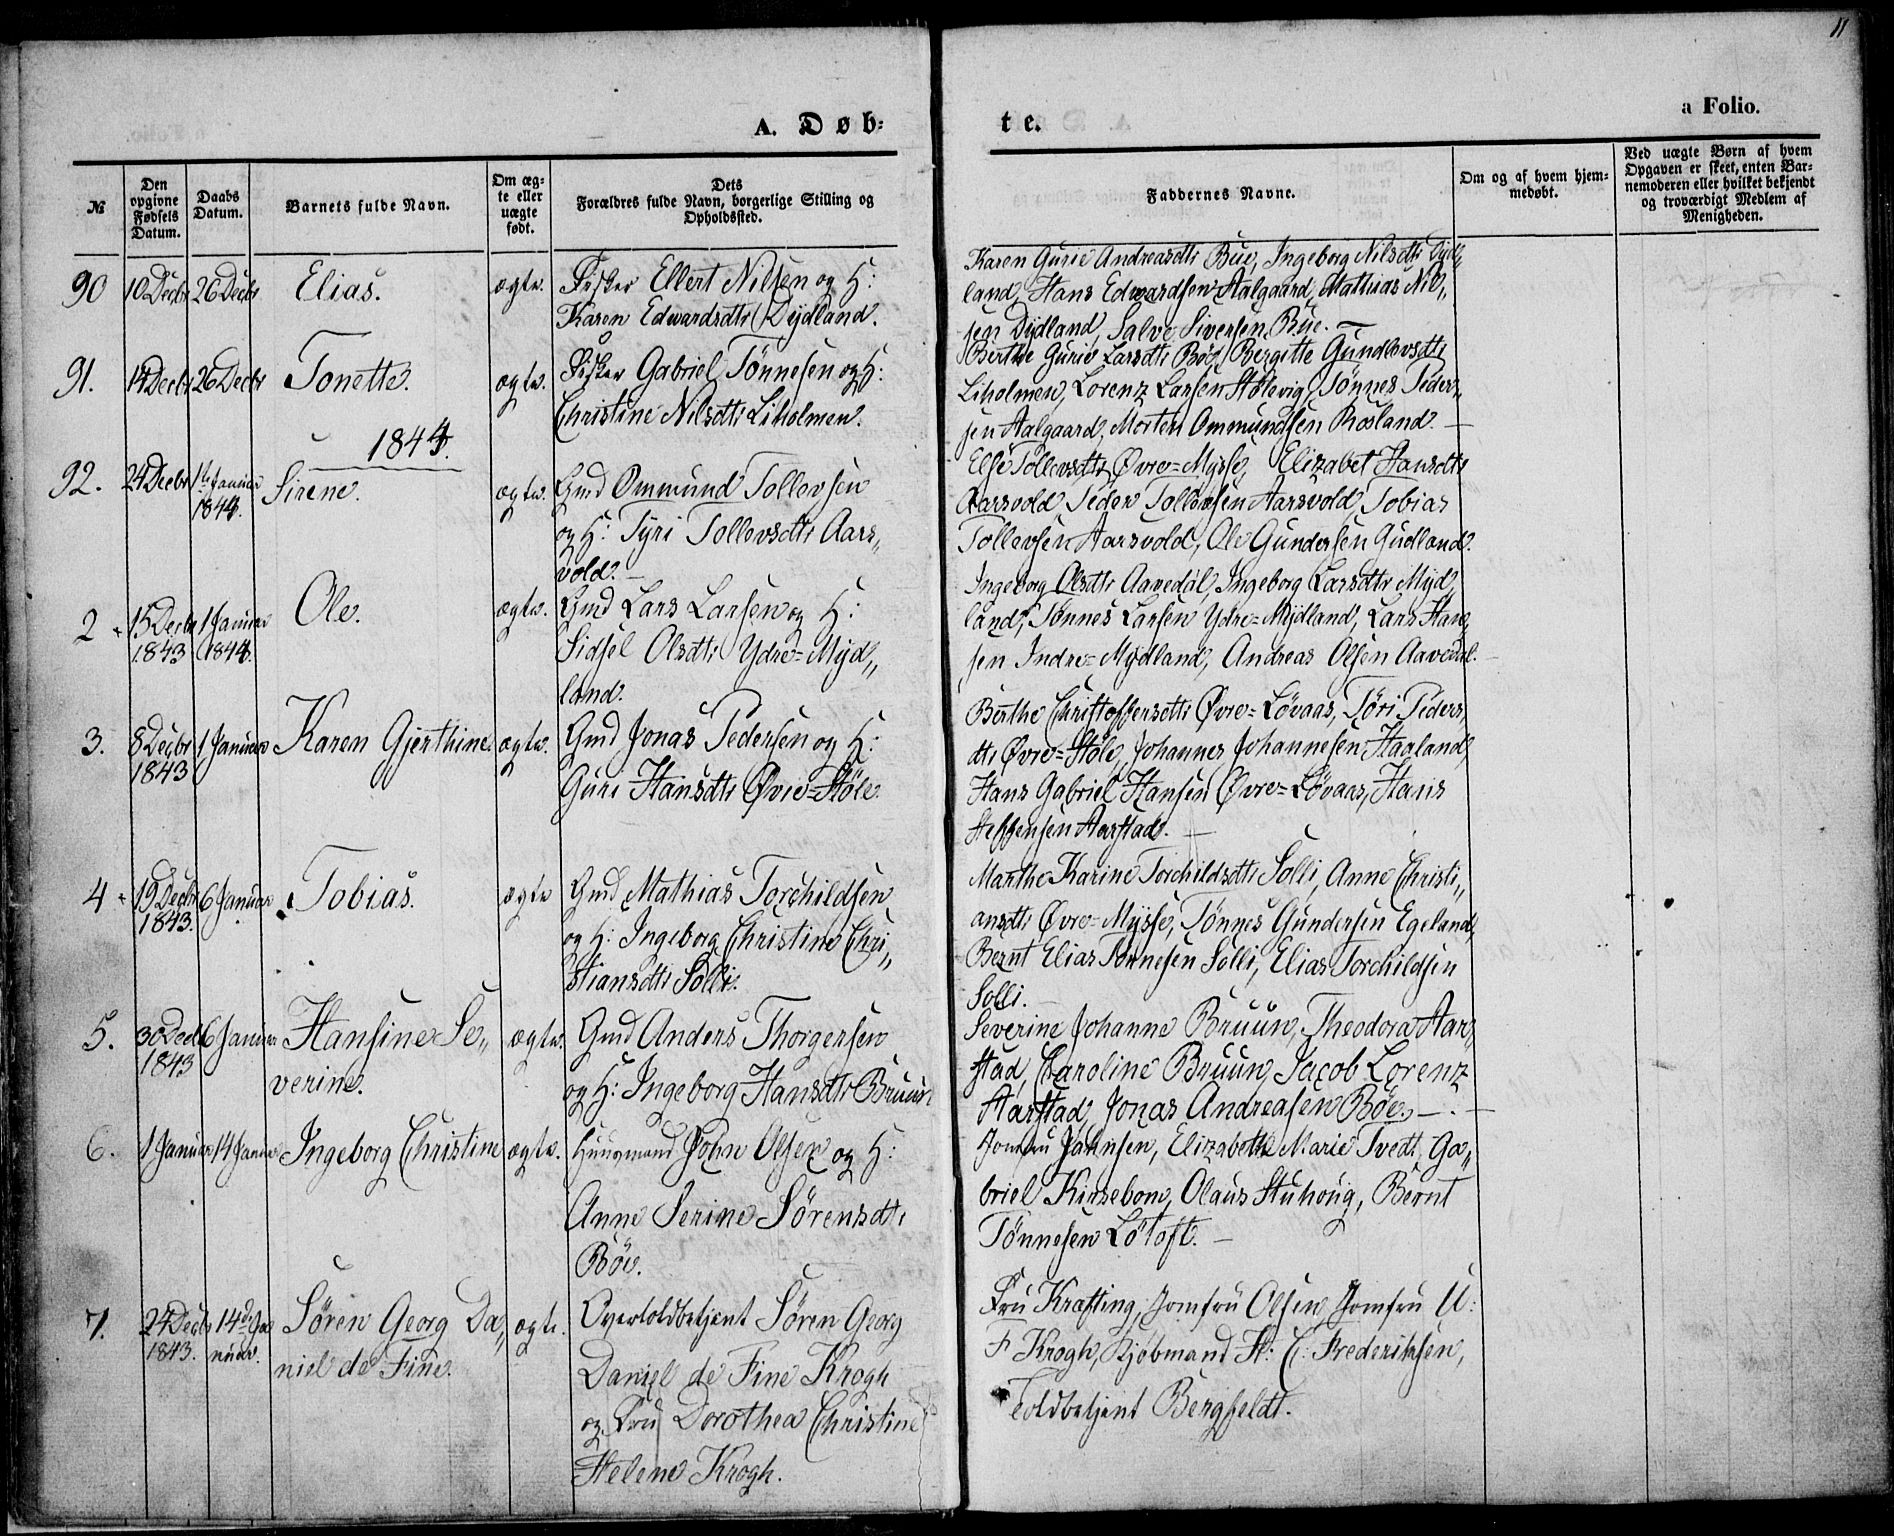 11
A. Døb-
te.
a Folio.
№
Den opgivne Fødsels Datum.
Daabs Datum.
Barnets fulde Navn.
Om ægte eller uægte født.
Dets Forældres fulde Navn, borgerlige Stilling og Opholdssted.
Faddernes Navne.
Om og af hvem hjemmedøbt.
Ved uægte Børn af hvem Opgaven er skeet, enten Barnemoderen eller hvilket bekjendt og troværdigt Medlem af Menigheden.
90 10 Decbr 26 Decbr Elias. ægte. Fisker Ellert Nilsen og H:
Karen Edwardsdtr Dydland.
Karen Gurie Andreasdtr Bue, Ingeborg Nilsdtr Dyd„
land, Hans Edwardsen Aalgaard, Mathias Nil„
sen Dydland, Salve Sivertsen Bue. —
91. 14 Decbr 26 Decbr Tonette. ægte. Fisker Gabriel Tønnesen og H:
Christine Nilsdtr Liholmen.
Berthe Gurie Larsdtr Böe, Bergitte Gundlevsdtr
Liholmen, Lorenz Larsen Stölevig, Tönnes Peder„
sen Aalgaard, Morten Ommundsen Rosland. —
1844.
92. 24 Decbr 1ste Januar 1844. Sirene. ægte. Gmd Ommund Tollevsen
og H: Tyri Tollevsdtr Aars„
vold. —
Else Tollevsdtr Øvre=Mysse, Elizabet Hansdtr
Aarsvold, Peder Tollevsen Aarsvold, Tobias
Tollevsen Aarsvold, Ole Gundersen Gudland.
2 15 Decbr 1843 1 Januar 1844. Ole. ægte. Gmd Lars Larsen og H:
Sidsel Olsdtr Ydre=Myd„
land.
Ingeborg Olsdtr Aavedal, Ingeborg Larsdtr Myd„
land, Tønnes Larsen Ydre=Mydland, Lars Han„
sen Indre=Mydland, Andreas Olsen Aavedal. —
3. 8 Decbr 1843 1 Januar Karen Gjerthine ægte. Gmd Jonas Pedersen og H:
Guri Hansdtr Øvre=Støle.
Berthe Christoffersdtr Øvre=Lövaas, Töri Peders„
dtr Øvre=Støle, Johannes Johannesen Haaland,
Hans Gabriel Hansen Øvre=Lövaas, Hans
Steffensen Aarstad. —
4 19 Decbr 1843. 6 Januar Tobias. ægte Gmd Mathias Torchildsen
og H: Ingeborg Christine Chri„
stiansdtr Solli.
Marthe Karine Torchildsdtr Solli, Anne Christi„
ansdtr Øvre=Mysse, Tönnes Gundersen Egeland,
Bernt Elias Tönnesen Solli, Elias Torchildsen
Solli. —
5. 30 Decbr 1843 6 Januar Hansine Se„
verine. ægte. Gmd Anders Thorgersen
og H: Ingeborg Hansdtr Bruun
Severine Johanne Bruun, Theodora Aar„
stad, Caroline Bruun, Jacob Lorenz
Aarstad, Jonas Andreasen Böe. —
6. 1 Januar 14 Januar Ingeborg Christine ægte. Huusmand John Olsen og H:
Anne Serine Sörensdtr
Böe.
Jomfru Jahnsen, Elizabeth Marie Tvedt, Ga„
briel Kirsebom, Olaus Stuhoug, Bernt
Tönnesen Lötoft. —
7. 24 Decbr 1843. 14de Ja
nuar. Sören Georg Da„
niel de Fine. ægte. Overtoldbetjent Sören Georg
Daniel de Fine Krogh
og Fru Dorothea Christine
Helene Krogh.
Fru Krafting, Jomfru Olsen, Jomfru U:
F Krogh, Kjöbmand St: C: Frederiksen,
Toldbetjent Bergfeldt.